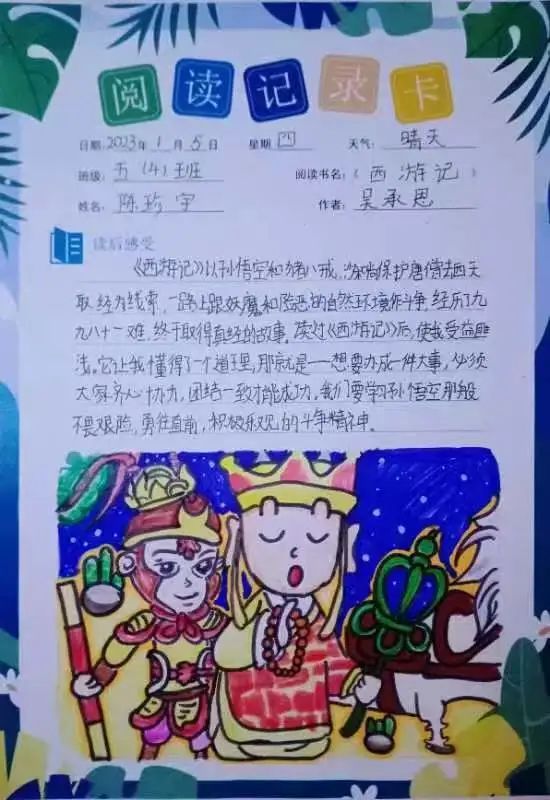 阅读记录卡
日期:2023年1月5日 星期四 天气:晴天
班级:五(4)班 阅读书名:《西游记》
姓名:陈珍宇 作者:吴承恩
读后感受
《西游记》以孙悟空和猪八戒,沙和尚保护唐僧去西天
取经为线索,一路上跟妖魔和险恶的自然环境作斗争,经历了九
九八十一难,终于取得真经的故事。读过《西游记》后,使我受益匪
浅。它让我懂得了一个道理,那就是一一想要办成一件大事,必须
大家齐心协力,团结一致才能成功,我们要学习孙悟空那般
不畏艰险,勇往直前,积极乐观的斗争精神。